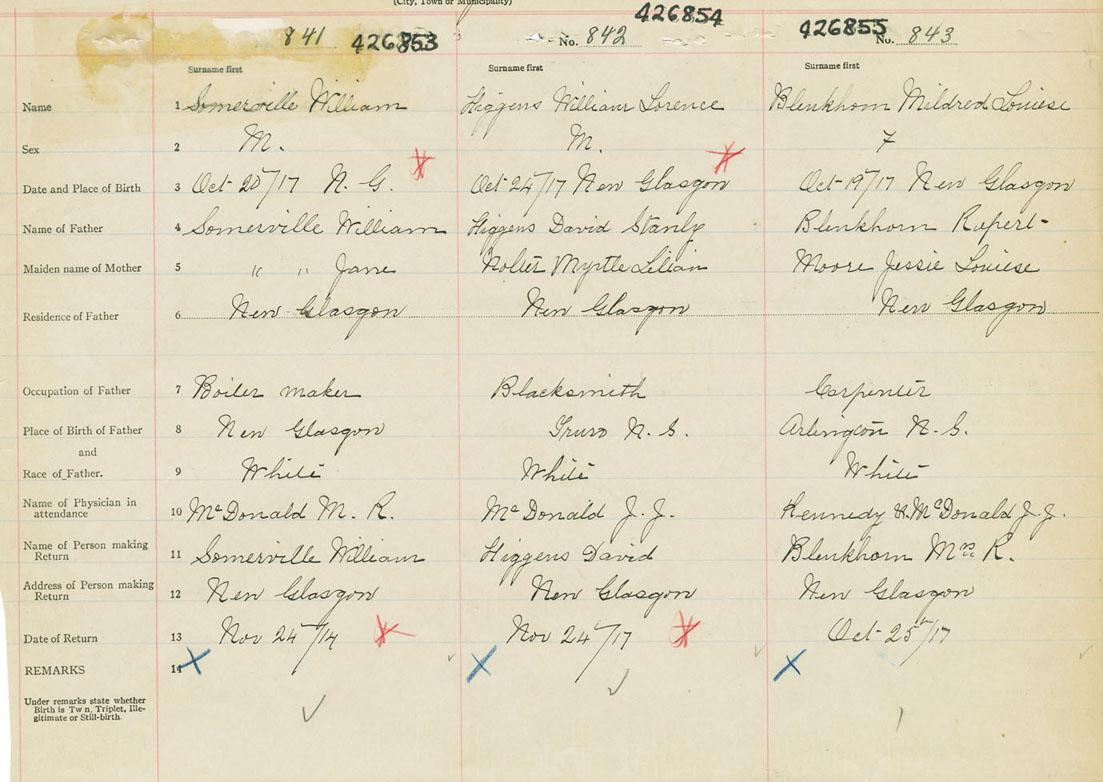 (City, Town or Municipality)
841 426853 No. 842 426854 426855 No. 843
Surname first Surname first Surname first
Name 1 Somerville William Higgens William Lorence Blenkhorn Mildred Louiese
Sex 2 M. M. F
Date and Place of Birth 3 Oct 20/17 N. G. Oct 24/17 New Glasgow Oct 19/17 New Glasgow
Name of Father 4 Somerville William Higgens David Stanly Blenkhorn Rupert
Maiden name of Mother 5 " " Jane Myrtle Lilian Moore Jessie Louiese
Residence of Father 6 New Glasgow New Glasgow New Glasgow
Occupation of Father 7 Boiler maker Blacksmith Carpenter
Place of Birth of Father 8 New Glasgow Truro N. S. Arlington N. S.
and
Race of Father. 9 White White White
Name of Physician in attendance 10 McDonald M. R. McDonald J. J. Kennedy & McDonald J. J.
Name of Person making Return 11 Somerville William Higgens David Blenkhorn Mrs R.
Address of Person making Return 12 New Glasgow New Glasgow New Glasgow
Date of Return 13 Nov 24/17 Nov 24/17 Oct 25/17
REMARKS 14
Under remarks state whether
Birth is Twin, Triplet, Ille-
gitimate or Still-birth.